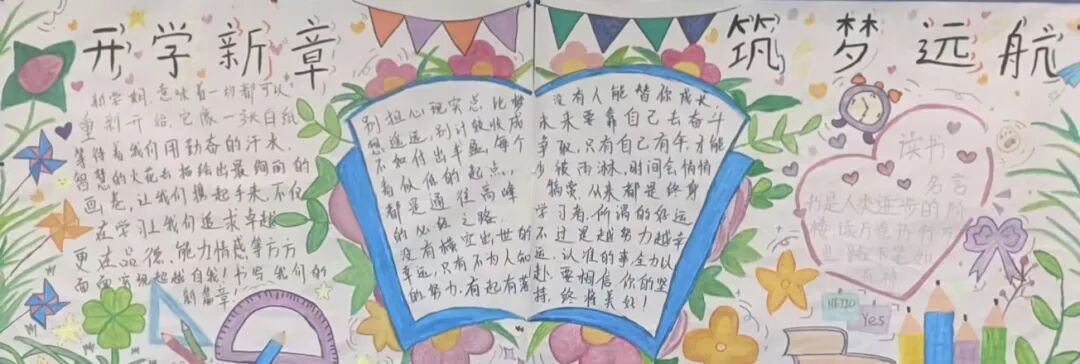 开学新章
筑梦远航
新学期,意味着一切都可以
重新开始,它像一张白纸
等待着我们用勤奋的汗水,
智慧的火花去描绘出最绚丽的
画卷,让我们携起手来,不仅
在学习上我们追求卓越
更在品德,能力情感等方方
面面实现超越自我!书写我们的
新篇章!
别担心现实总比梦
想遥远,别计较收成
不如付出丰盈,每个
看似低的起点,
都是通往高峰
的必经之路
没有横空出世的
幸运,只有不为人知
的努力,有起有落
没有人能替你成长,
未来要靠自己去奋斗
争取,只有自己有伞才能
少被雨淋,时间会悄悄
犒赏,从来都是终身
学习者,所谓的好运
不过是越努力越幸
运,认准的事全力以
赴,要相信你的坚
持,终将美好!
读书
名言
书是人类进步的阶
梯 读万卷书行万
里路 下笔如
有神
HELLO
Yes